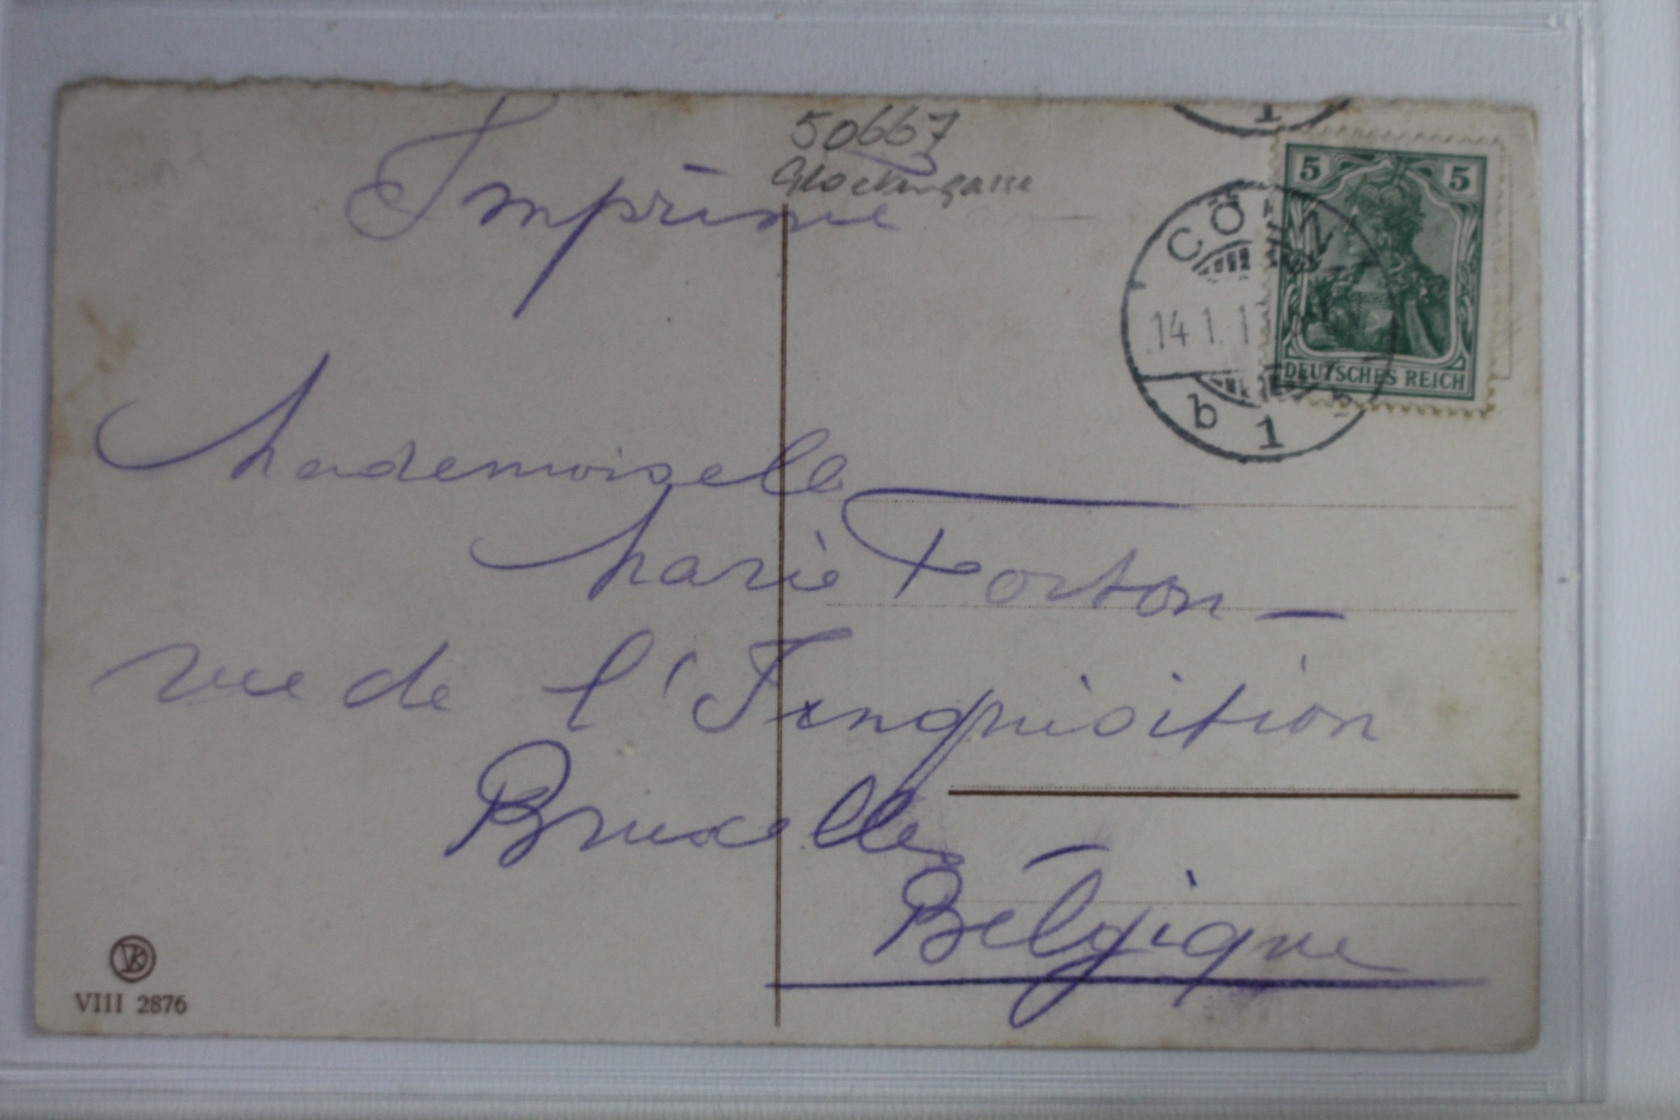 50667
Glockengasse
Imprimé
1
5 5
DEUTSCHES REICH
CÖLN
14.1.1
b 1 b
Mademoiselle
Marie Forton
rue de l'Inquisition
Bruxelles
Belgique
VIII 2876